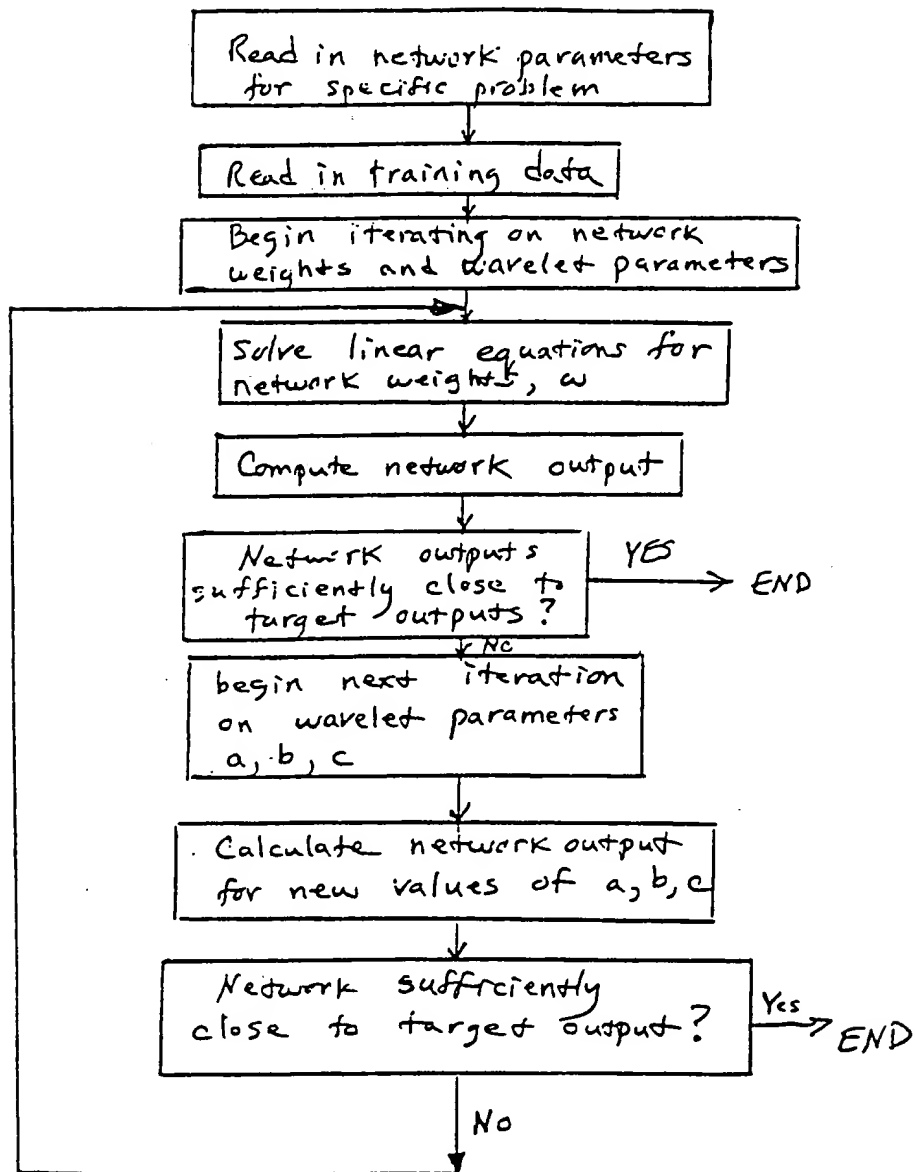 Read in network parameters
for specific problem
Read in training data
Begin iterating on network
weights and wavelet parameters
Solve linear equations for
network weights, w
Compute network output
Network outputs
sufficiently close to
target outputs?
YES
END
No
begin next iteration
on wavelet parameters
a, b, c
Calculate network output
for new values of a, b, c
Network sufficiently
close to target output?
Yes
END
No